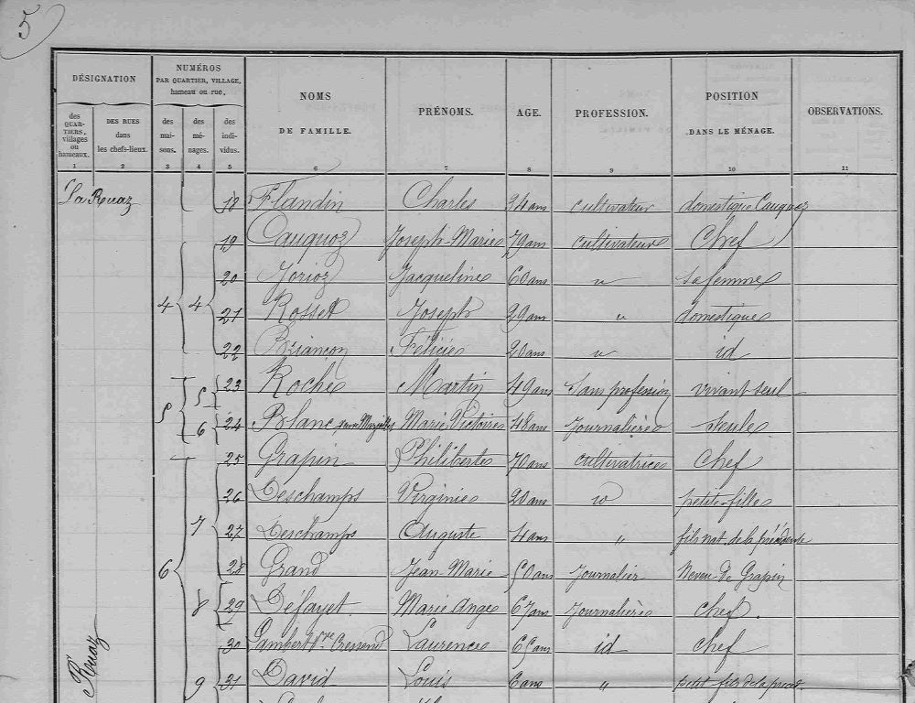 5
DÉSIGNATION
NUMÉROS PAR QUARTIER, VILLAGE, hameau ou rue,
NOMS DE FAMILLE.
PRÉNOMS.
AGE.
PROFESSION.
POSITION DANS LE MÉNAGE.
OBSERVATIONS.
des QUARTIERS, villages ou hameaux.
DES RUES dans les chefs-lieux.
des maisons.
des ménages.
des individus.
1 2 3 4 5 6 7 8 9 10 11
La Ruaz 18 Flandin Charles 34 ans cultivateur domestique Cauquoz
19 Cauquoz Joseph-Marie 79 ans cultivateur Chef
20 Jorioz Jacqueline 60 ans " sa femme
4 4 21 Rosset Joseph 29 ans " domestique
22 Briançon Félicie 20 ans " id
5 5 23 Roche Martin 49 ans Sans profession vivant seul
6 24 Blanc Marie Victoire 48 ans Journalière Seule
25 Grapin Philiberte 70 ans cultivatrice Chef
26 Deschamps Virginie 20 ans id petite-fille
7 27 Deschamps Auguste 4 ans " fils nat. de la précédente
6 28 Grand Jean-Marie 50 ans Journalier Neveu de Grapin
8 29 Défayet Marie Ange 67 ans Journalière chef
30 Lambert Vve Laurence 65 ans id chef
Ruaz 9 31 David Louis 6 ans " petit fils de la préct.